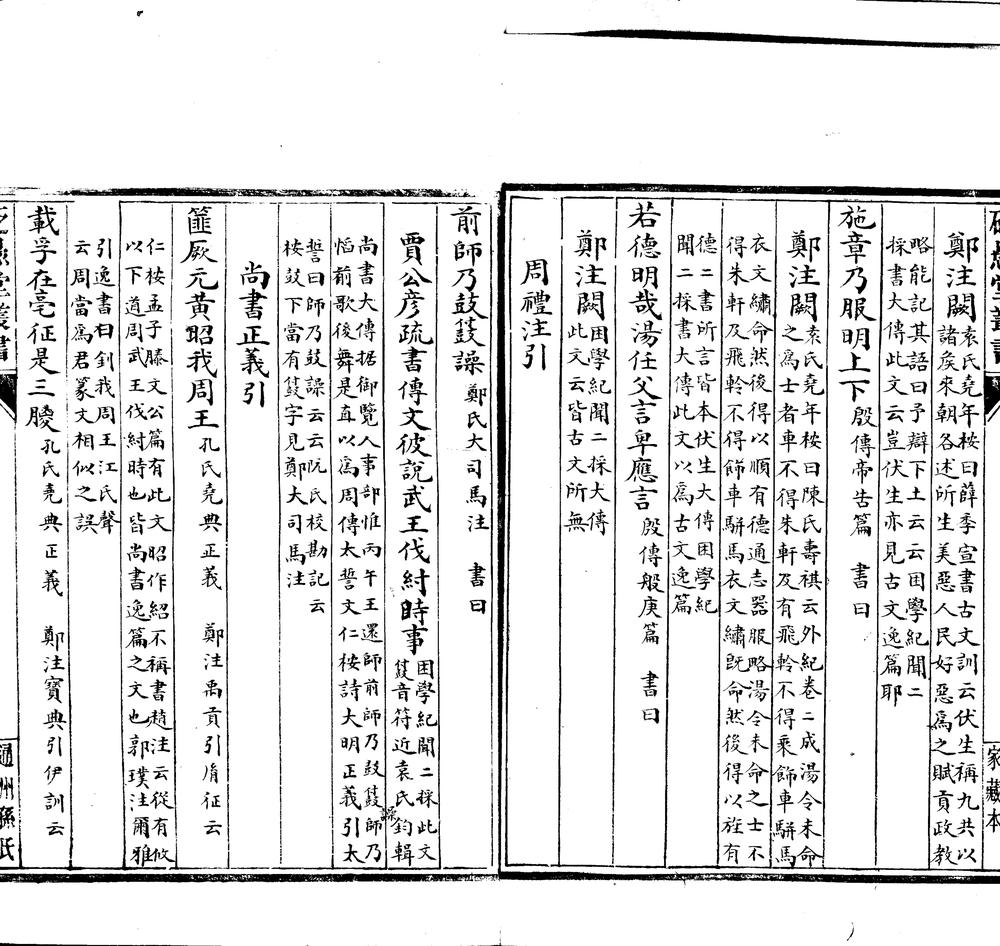 鄭注闕袁氏堯年桉曰薛季宣書古文訓云伏生稱九共以
諸矦來朝各述所生美惡人民好惡爲之賦貢政教
略能記其語曰予辯下土云云困學紀聞二
採書大傳此文云豈伏生亦見古文逸篇耶
施章乃服明上下殷傳帝告篇 書曰
鄭注闕袁氏堯年桉曰陳氏壽祺云外紀卷二成湯令未命
之爲士者車不得朱軒及有飛軨不得乘飾車駢馬
衣文繡命然後得以順有德通志器服略湯令未命之士不
得朱軒及飛軨不得飾車駢馬衣文繡既命然後得以旌有
德二書所言皆本伏生大傳困學紀
聞二採書大傳此文以爲古文逸篇
若德明哉湯任父言卑應言殷傳般庚篇 書曰
鄭注闕困學紀聞二採大傳
此文云皆古文所無
周禮注引
前師乃鼓鼖譟鄭氏大司馬注 書曰
賈公彥疏書傳文彼說武王伐紂時事困學紀聞二採此文
鼖音符近袁氏鈞輯
尚書大傳据御覽人事部惟丙午王還師前師乃鼓鼖譟師乃
慆前歌後舞是直以爲周傳太誓文仁桉詩大明正義引太
誓曰師乃鼓譟云云阮氏校勘記云
桉鼓下當有鼖字見鄭大司馬注
尚書正義引
篚厥元黃昭我周王孔氏堯典正義 鄭注禹貢引胤征云
仁桉孟子滕文公篇有此文昭作紹不稱書趙注云從有攸
以下道周武王伐紂時也皆尚書逸篇之文也郭璞注爾雅
引逸書曰釗我周王江氏聲
云周當爲君篆文相似之誤
載孚在亳征是三朡孔氏堯典正義 鄭注寶典引伊訓云
家藏本
通州孫氏